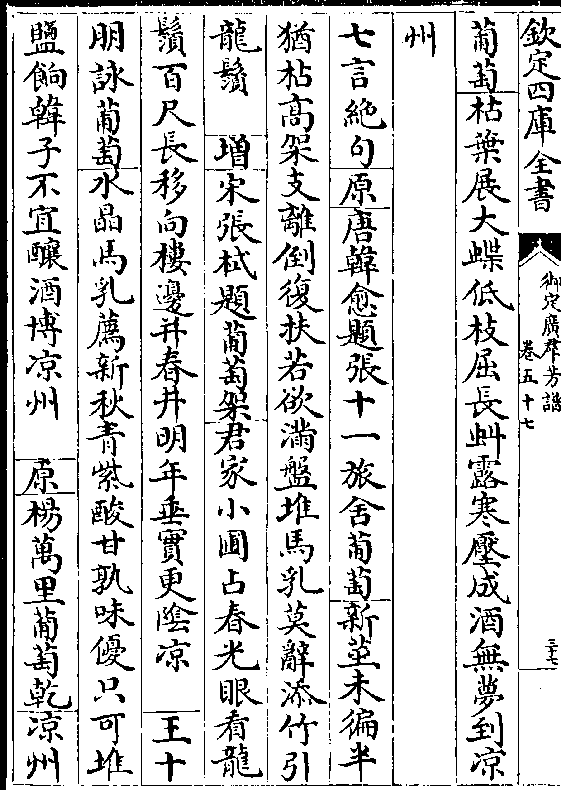 欽定四庫全書
御定廣群芳譜
卷五十七
三十七
葡萄枯葉展大蝶低枝屈長蚪露寒壓成酒無夢到凉
州
七言絶句原唐韓愈題張十一旅舍葡萄新莖未徧半
猶枯高架支離倒復扶若欲滿盤堆馬乳莫辭添竹引
龍鬚 增宋張栻題葡萄架君家小圃占春光眼看龍
鬚百尺長移向樓邊并春井明年垂實更陰凉 王十
朋詠葡萄水晶馬乳薦新秋青紫酸甘孰味優只可堆
盤餉韓子不宜釀酒博凉州 原楊萬里葡萄乾凉州